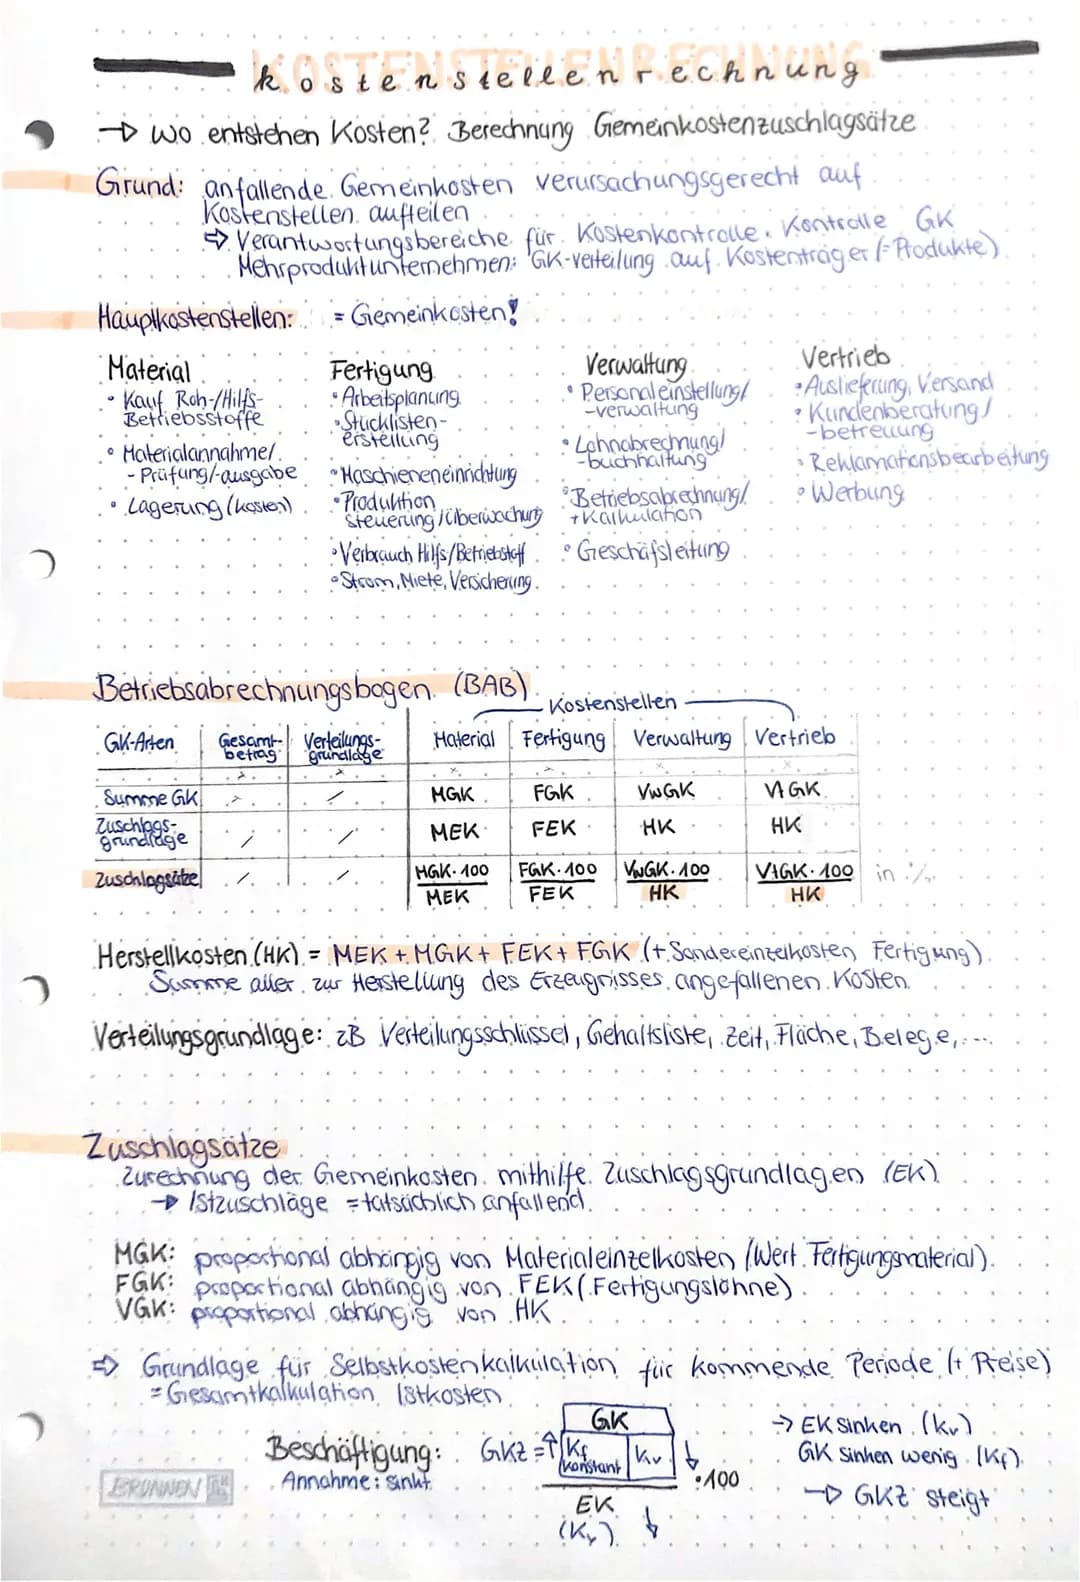 KOSTENSTELLENRECHNUNG
kostenstellenrechnung
→ wo entstehen Kosten? Berechnung Gemeinkostenzuschlagsätze
Grund: anfallende Gemeinkosten verursachungsgerecht auf
Kostenstellen aufteilen
⇒ Verantwortungsbereiche für Kostenkontrolle. Kontrolle GK
Mehrproduktunternehmen: GK-verteilung auf Kostenträger (=Produkte)
Hauptkostenstellen: = Gemeinkosten!
Material
• Kauf Roh-/Hilfs-
Betriebsstoffe
• Materialannahme/
-Prüfung/-ausgabe
• Lagerung (kosten)
Fertigung
• Arbeitsplanung
• Stücklisten-
erstellung
• Maschieneneinrichtung
• Produktion
steuerung/überwachung
• Verbrauch Hilfs/Betriebstoff
• Strom, Miete, Versicherung
Verwaltung
• Personaleinstellung/
-verwaltung
• Lohnabrechnung/
-buchhaltung
• Betriebsabrechnung/
+Kalkulation
• Geschäfsleitung
Vertrieb
• Auslieferung, Versand
• Kundenberatung/
-betreuung
• Reklamationsbearbeitung
• Werbung
Betriebsabrechnungsbogen (BAB)
Kostenstellen
GK-Arten Gesamt-betrag Verteilungs-grundlage Material Fertigung Verwaltung Vertrieb
x x x x x x
Summe GK x / MGK FGK VwGK VtGK
Zuschlags-grundlage / / MEK FEK HK HK
Zuschlagsätze / / MGK·100 FGK·100 VwGK·100 VtGK·100 in %
MEK FEK HK HK
Herstellkosten (HK) = MEK + MGK + FEK + FGK (+ Sondereinzelkosten Fertigung)
Summe aller zur Herstellung des Erzeugnisses angefallenen Kosten
Verteilungsgrundlage: zB Verteilungsschlüssel, Gehaltsliste, Zeit, Fläche, Belege,...
Zuschlagsätze
Zurechnung der Gemeinkosten mithilfe Zuschlagsgrundlagen (EK)
→ Istzuschläge = tatsächlich anfallend
MGK: proportional abhängig von Materialeinzelkosten (Wert Fertigungsmaterial)
FGK: proportional abhängig von FEK (Fertigungslöhne)
VGK: proportional abhängig von HK
⇒ Grundlage für Selbstkostenkalkulation für kommende Periode (+ Preise)
= Gesamtkalkulation Istkosten
Beschäftigung:
Annahme: sinkt
GK
GKZ = ↑ Kf konstant Kv ↓ ·100
EK
(Kv) ↓
→ EK sinken (kv)
GK sinken wenig (Kf)
→ GKZ steigt
BRUNNEN